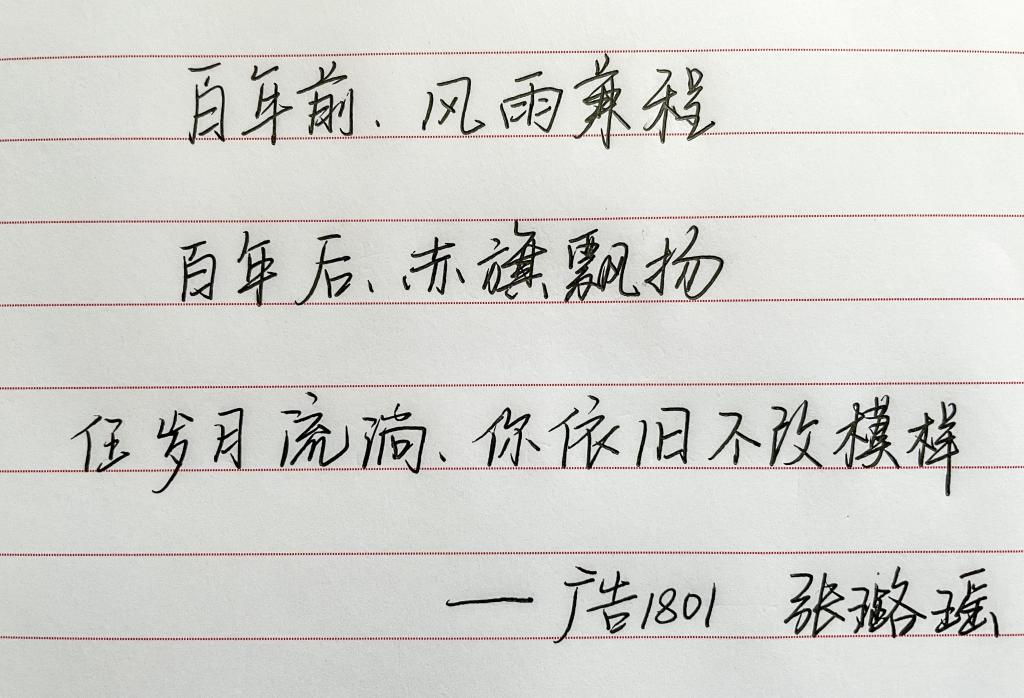 百年前、风雨兼程
百年后、赤旗飘扬
任岁月流淌、你依旧不改模样
——广告1801 张璐瑶